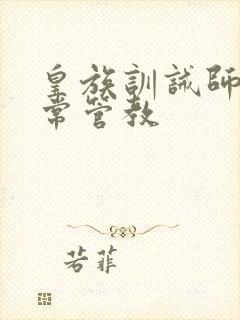 皇族訓誡師
常管教
若菲